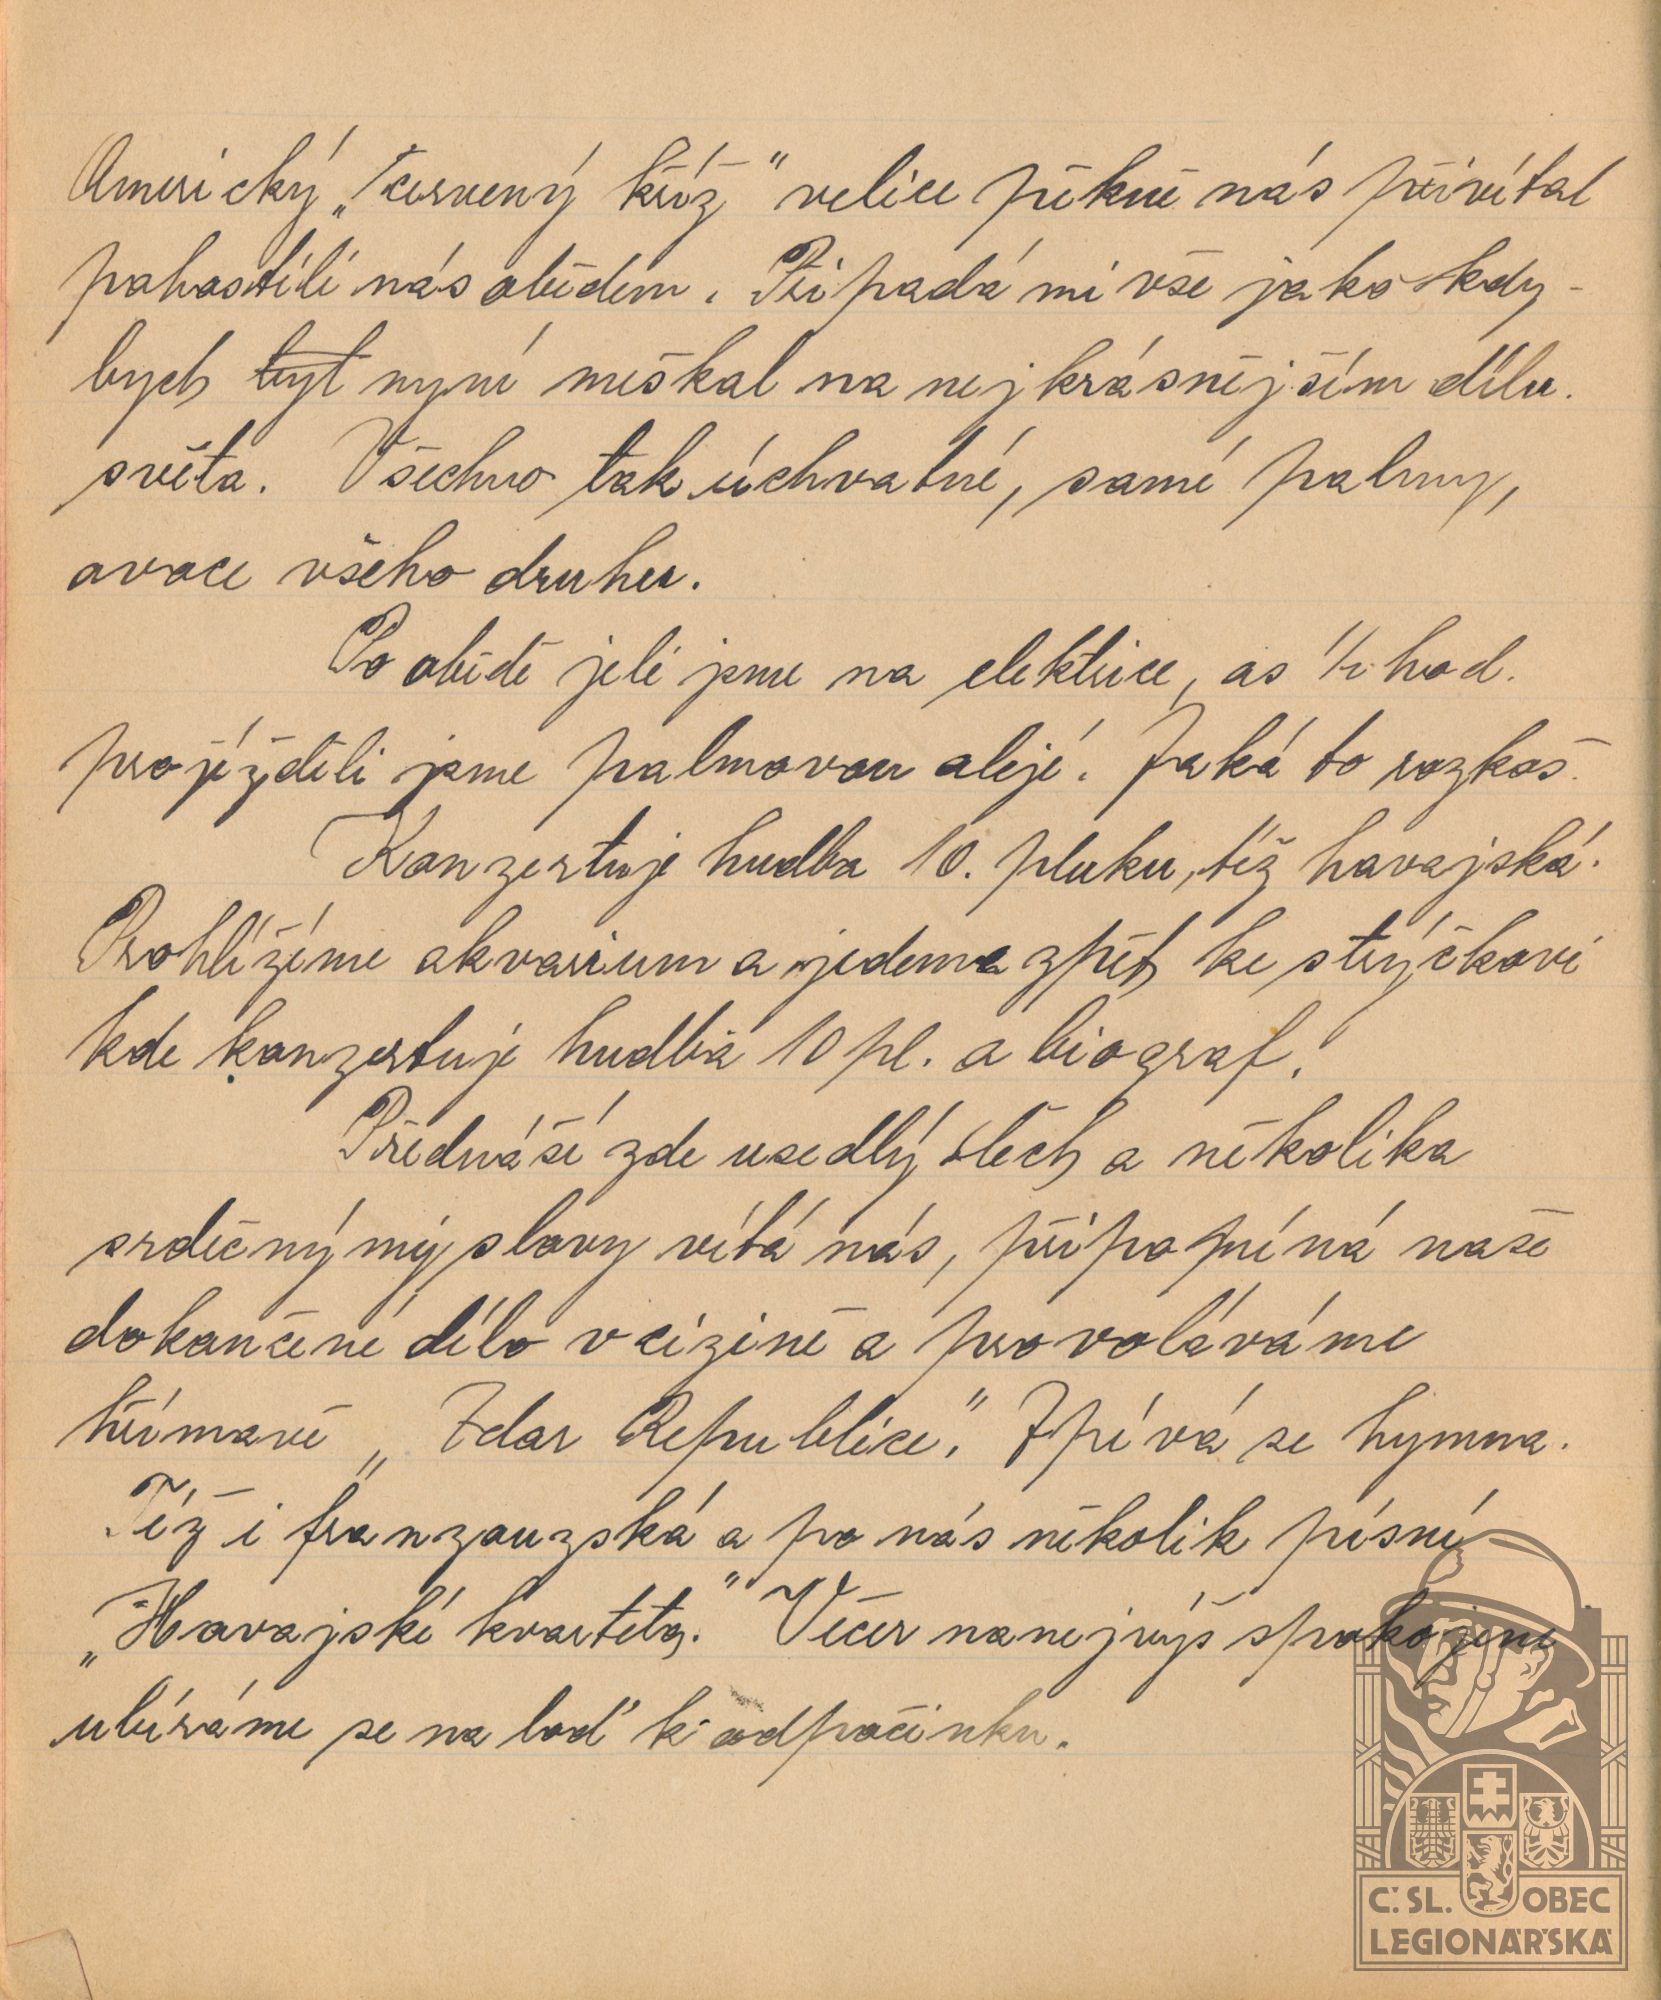 Americký „Červený kříž" velice pěkně nás přivítal
pohostili nás obědem. Připadá mi vše jako kdy-
bych byl nyní meškal na nejkrásnějším dílu.
světa. Všechno tak úchvatné, samé palmy,
ovoce všeho druhu.
Po obědě jeli jsme na elektrice, as ½ hod.
projížděli jsme palmovou alejí. Jaká to rozkoš.
Konzertuje hudba 10. pluku, též havajská.
Prohlížíme akvarium a jedeme zpět ke strýčkovi
kde konzertuje hudba 10 pl. a biograf.
Přednáší zde usedlý čech a několika
srdečnými slovy vítá nás, připomíná naše
dokončené dílo v cizině a provoláváme
hřímavě „Zdar Republice". Zpívá se hymna.
Též i franzouzská a po nás několik písní
„Havajské kvarteto." Večer nanejvýš spokojeni
ubíráme se na loď k odpočinku.
Č. SL. OBEC
LEGIONÁŘSKÁ